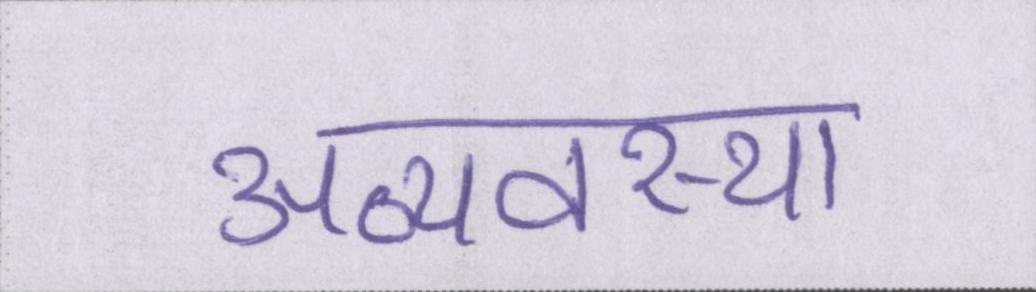 अव्यवस्था